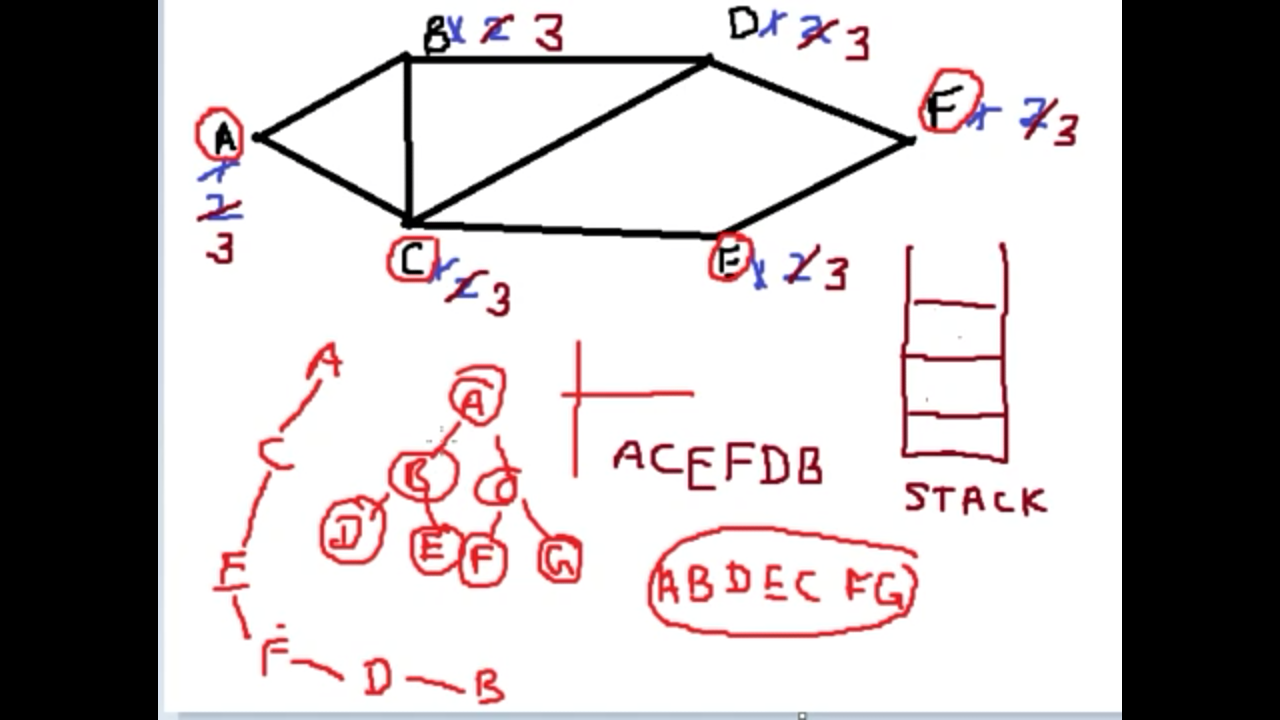 B 1 2 3
D 1 2 3
A
1
2
3
F 1 2 3
C 1 2 3
E 1 2 3
A
C
E
F D B
A
B C
D E F G
ACEFDB
STACK
ABDEC FG